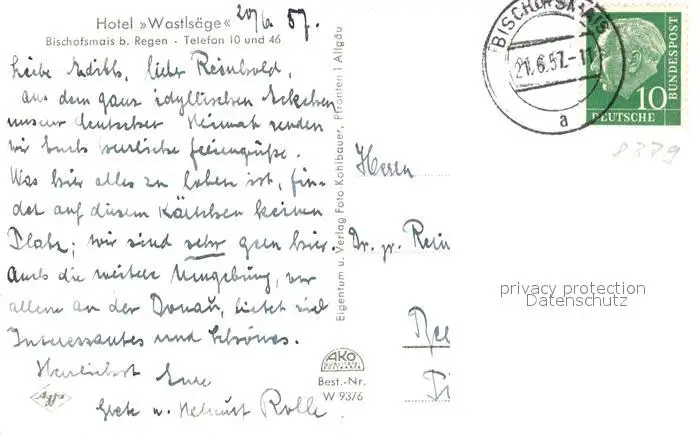 Hotel »Wastlsäge« 20/6. 57.
Bischofsmais b. Regen · Telefon 10 und 46
Liebe Edith, lieber Reinhold,
aus dem ganz idyllischen Eckchen
unserer deutschen Heimat senden
wir Euch herzliche Feriengrüße.
Was hier alles zu loben ist, fin-
det auf diesem Kärtchen keinen
Platz; wir sind sehr gern hier.
Auch die weitere Umgebung, vor
allem an der Donau, bietet viel
Interessantes und Schönes.
Herzlichst Eure
Grete u. Helmut Rolle
Agfa
Eigentum u. Verlag Foto-Kohlbauer, Pfronten i Allgäu
AKO
Best.-Nr.
W 9376
BISCHOFSMAIS
21.6.57.-17
a
10
DEUTSCHE
BUNDESPOST
8379
Herrn
Dr. jr. Rein
privacy protection
Datenschutz